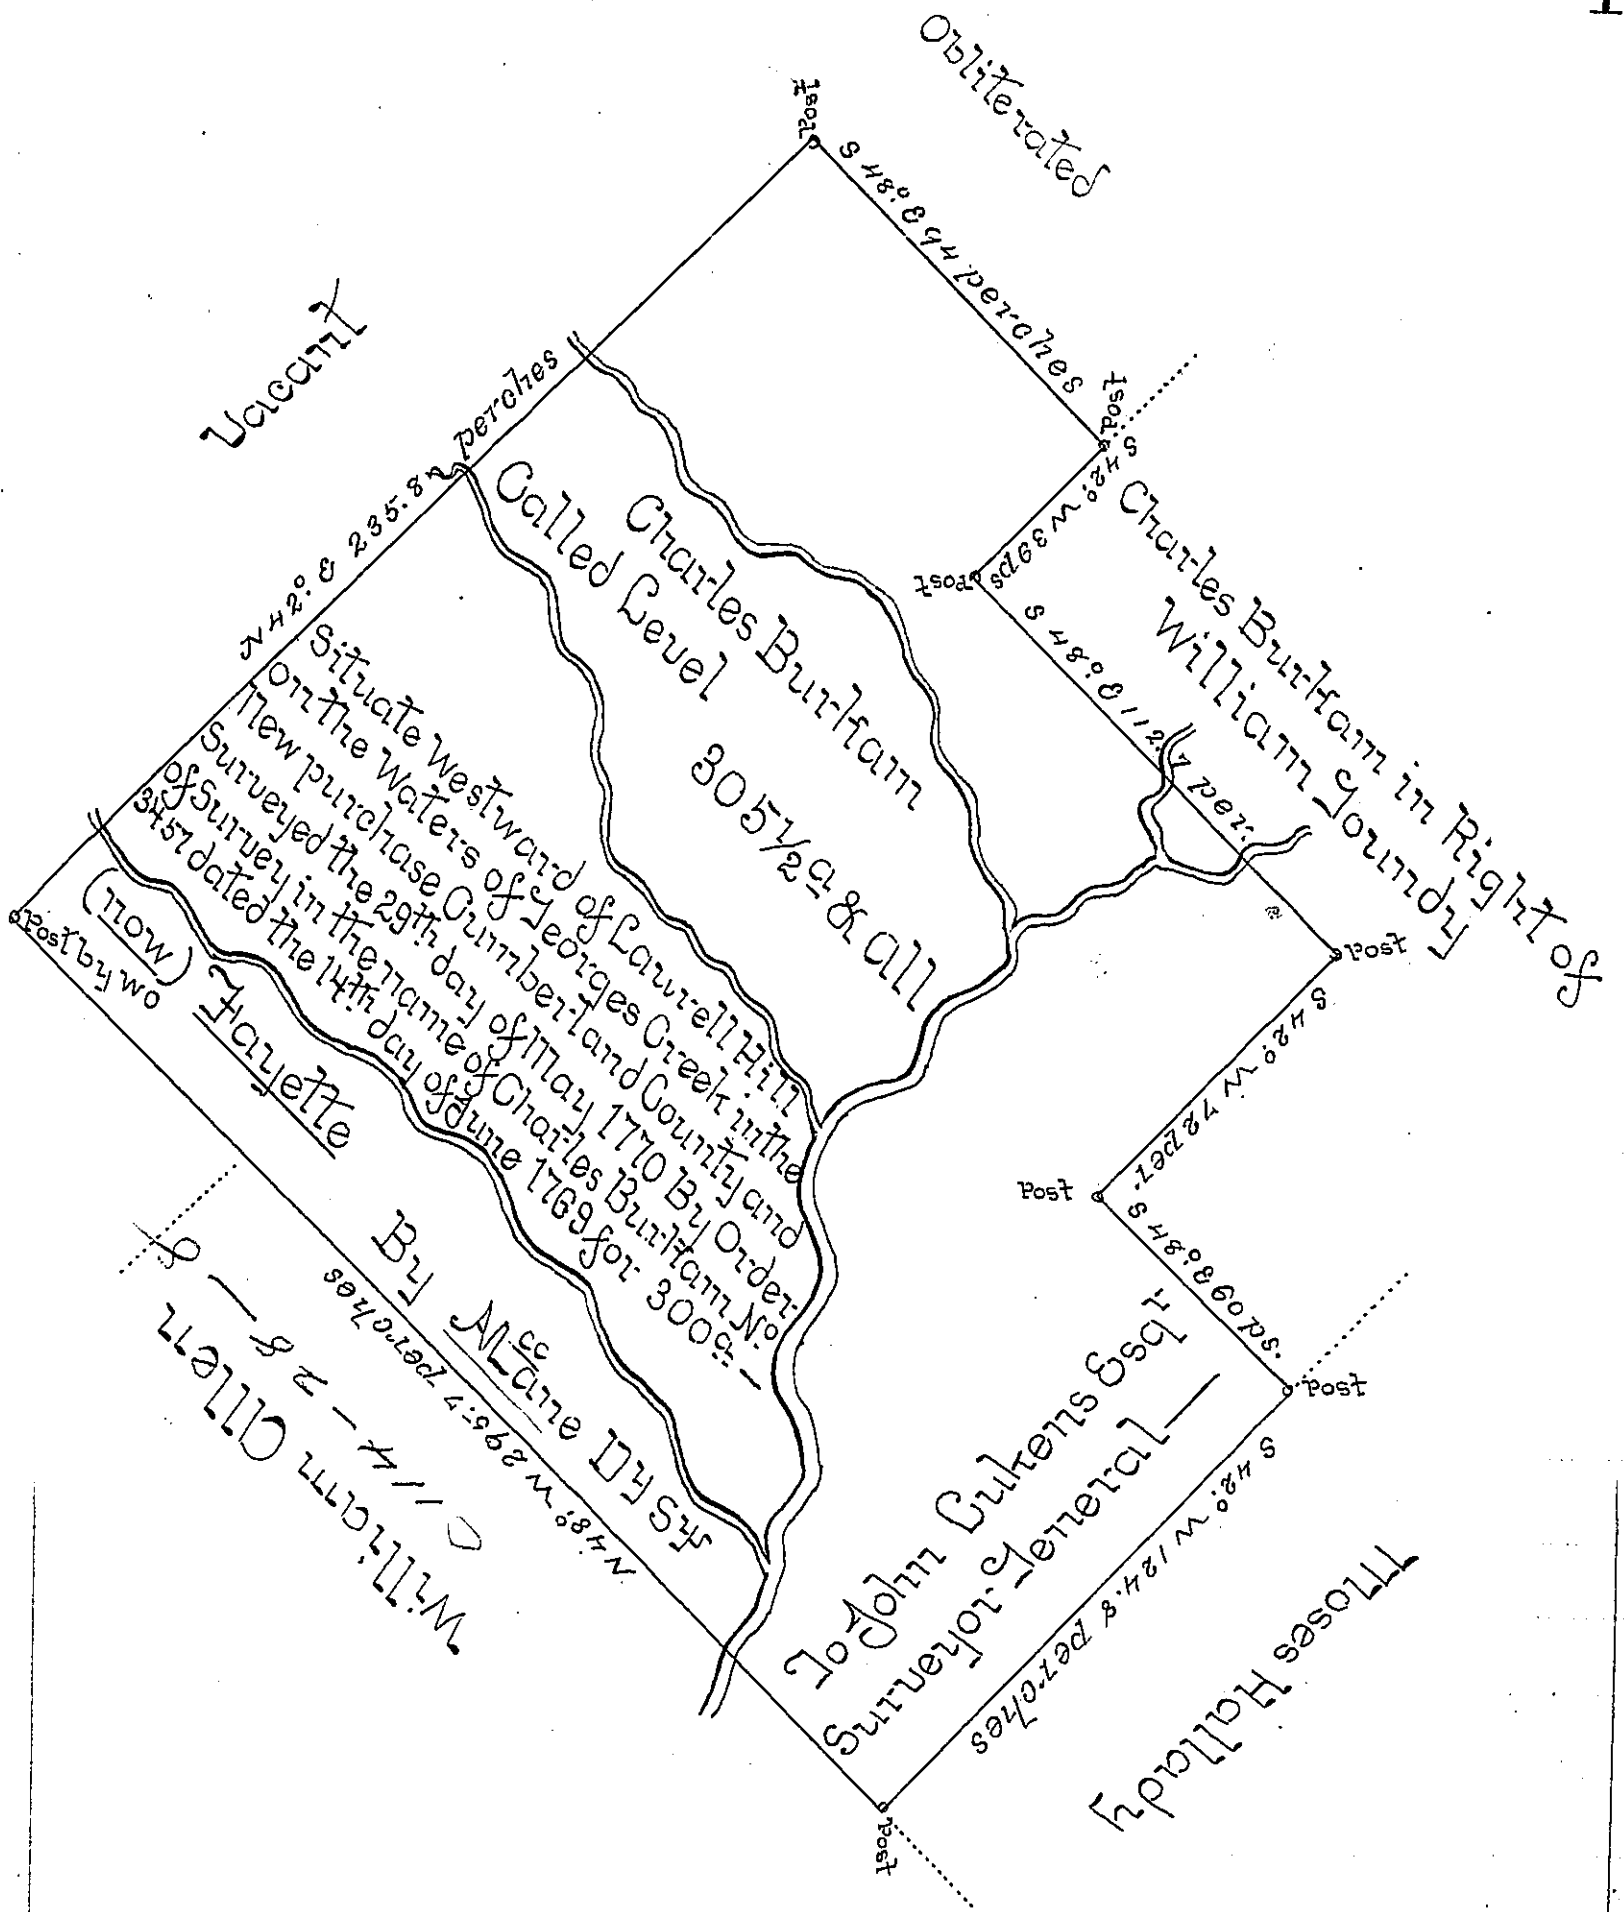 Obliterated
Post
S 48° E 94 perches
Post
S 42° W 39 ps
Post
S 48° E 112.7 per.
Charles Burkam in Right of
William Youndy
Post
S 42° W 72 per.
Post
S 48° E 60 ps.
Post
S 42° W 124.8 perches
Moses Hallady
Post
N 48° W 295.7 perches
William Allen
C 114 - 28 -
Post by wo
N 42° E 235.8 perches
Vacant
Charles Burkam
Called Level
305 1/2 a & all
Situate westward of Laurell Hill
on the Waters of Georges Creek in the
New purchase Cumberland County and
Surveyed the 29th day of May 1770 By Order
of Survey in the name of Charles Burkam No.
3457 dated the 14th day of June 1769 for 300 a. —
(now) Fayette
By McClane Dy Sr
To John Lukens Esqr
Surveyor General —